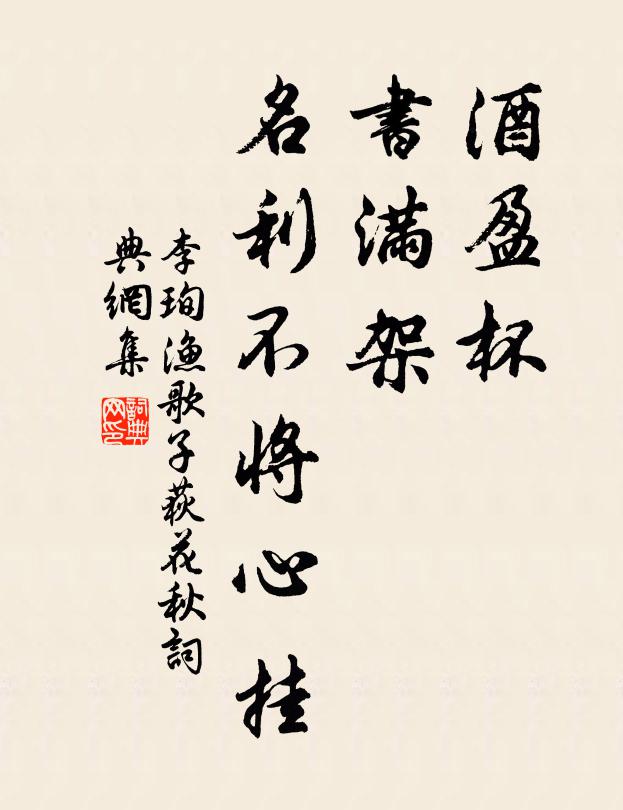 酒盈杯
書滿架
名利不將心挂
李珣漁歌子荻花秋詞
典網集
詞典網印